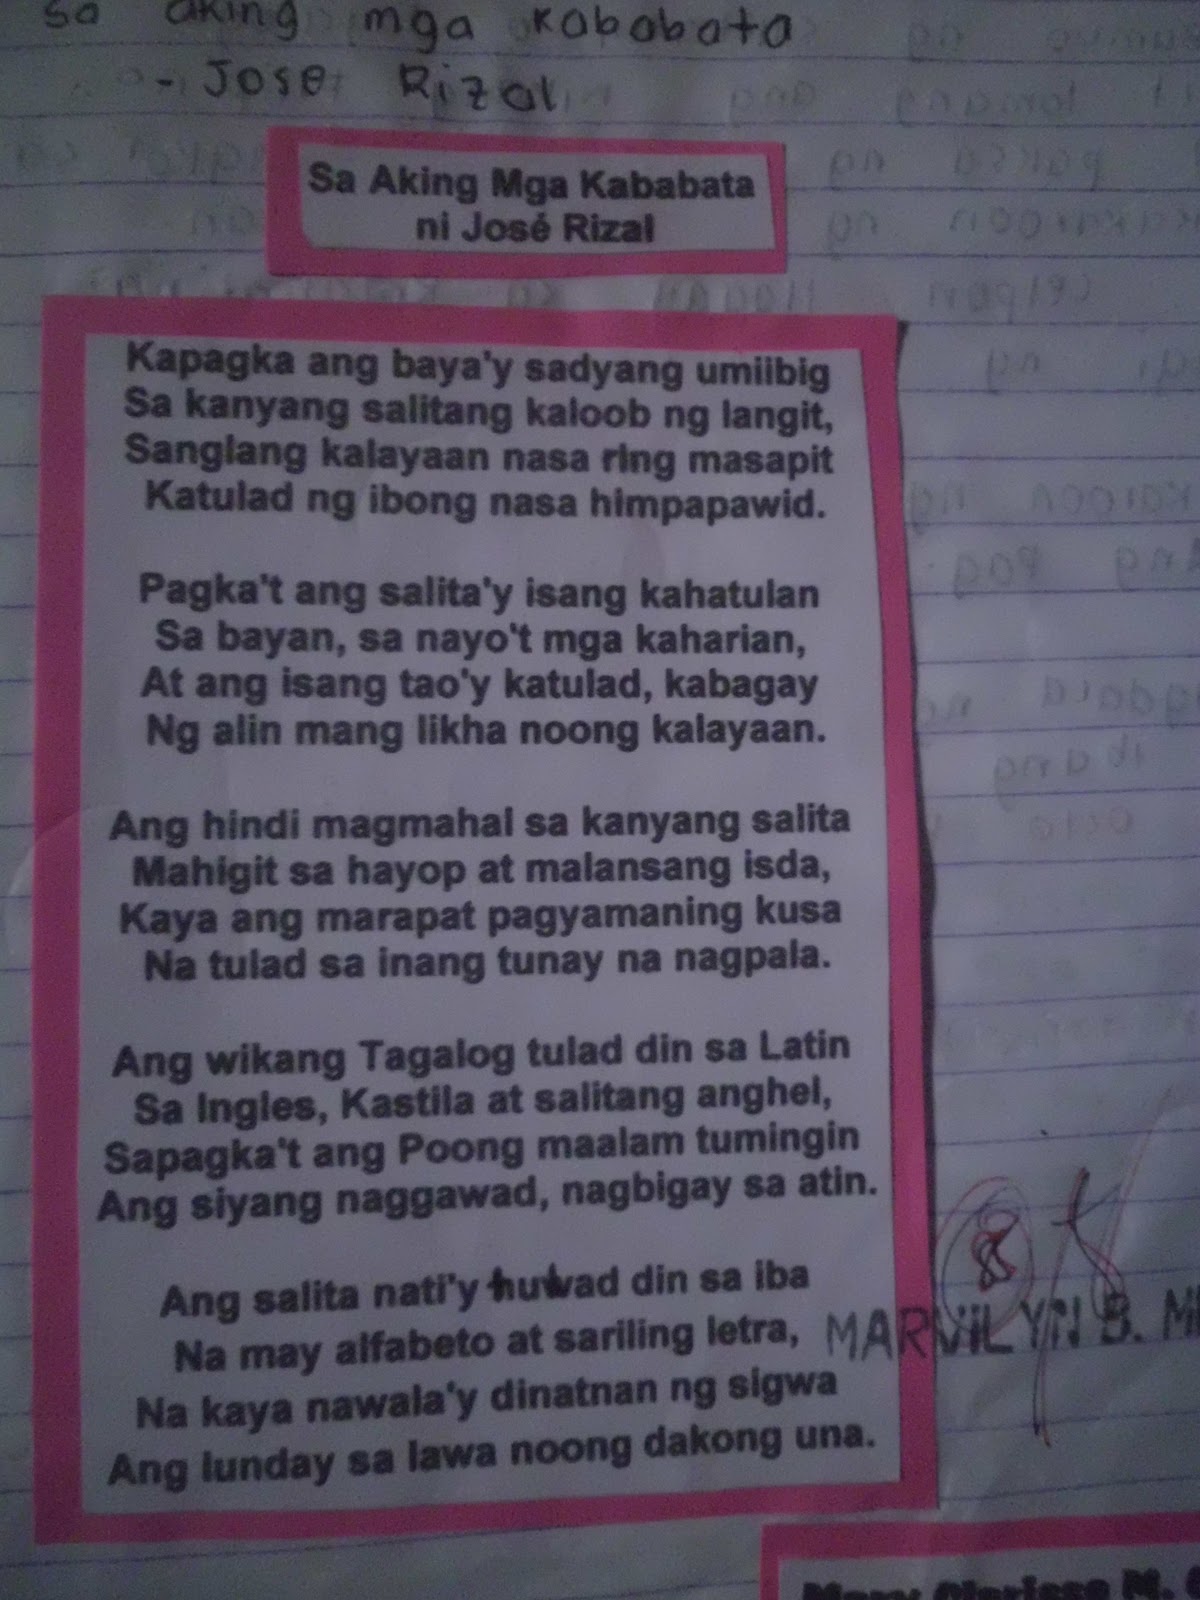 sa aking mga kababata
- Jose Rizal
Sa Aking Mga Kababata
ni José Rizal
Kapagka ang baya'y sadyang umiibig
Sa kanyang salitang kaloob ng langit,
Sanglang kalayaan nasa ring masapit
Katulad ng ibong nasa himpapawid.
Pagka't ang salita'y isang kahatulan
Sa bayan, sa nayo't mga kaharian,
At ang isang tao'y katulad, kabagay
Ng alin mang likha noong kalayaan.
Ang hindi magmahal sa kanyang salita
Mahigit sa hayop at malansang isda,
Kaya ang marapat pagyamaning kusa
Na tulad sa inang tunay na nagpala.
Ang wikang Tagalog tulad din sa Latin
Sa Ingles, Kastila at salitang anghel,
Sapagka't ang Poong maalam tumingin
Ang siyang naggawad, nagbigay sa atin.
Ang salita nati'y huwad din sa iba
Na may alfabeto at sariling letra,
Na kaya nawala'y dinatnan ng sigwa
Ang lunday sa lawa noong dakong una.
8
MARVILYN B. M